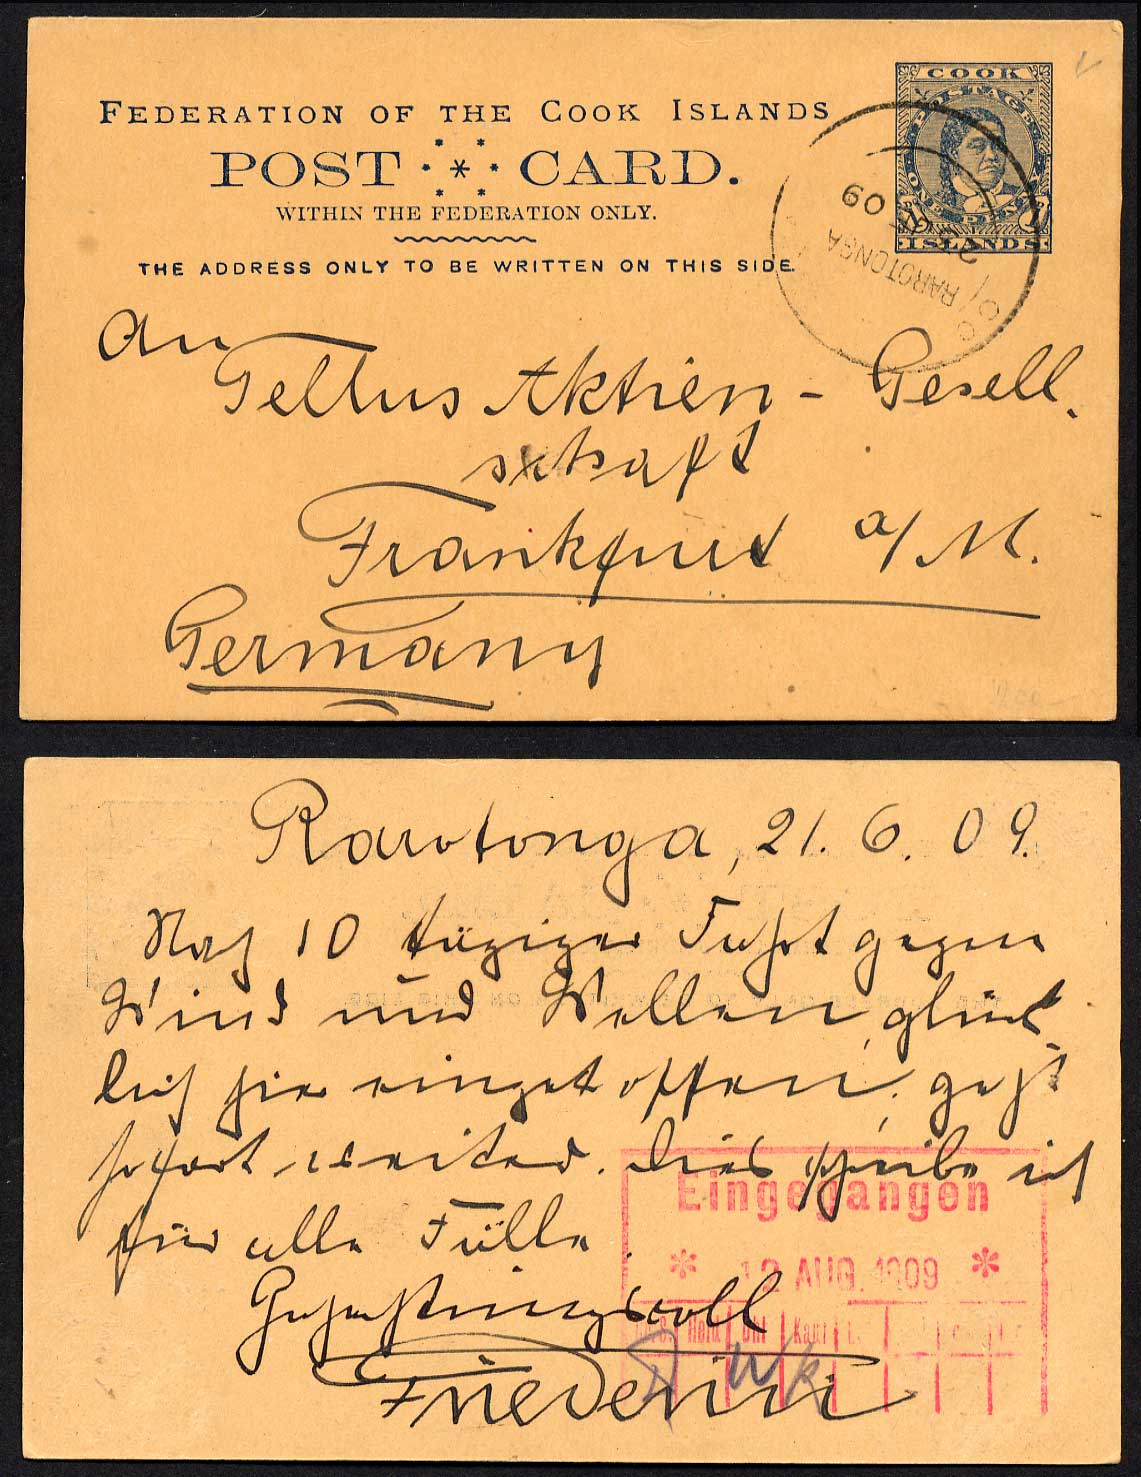 FEDERATION OF THE COOK ISLANDS
POST CARD.
WITHIN THE FEDERATION ONLY.
THE ADDRESS ONLY TO BE WRITTEN ON THIS SIDE.
COOK
POSTAGE
ONE PENNY
1 1
ISLANDS
RAROTONGA
09
An
Tellus Aktien-Gesell.
schaft
Frankfurt a/M.
Germany
Rarotonga, 21. 6. 09.
Nach 10 tägiger Fahrt gegen
Wind und Wellen glück-
lich hier eingetroffen, geht
sofort weiter. Dies schreibe ich
für alle Fälle.
Hochachtungsvoll
Eingegangen
* 12 AUG. 1909 *